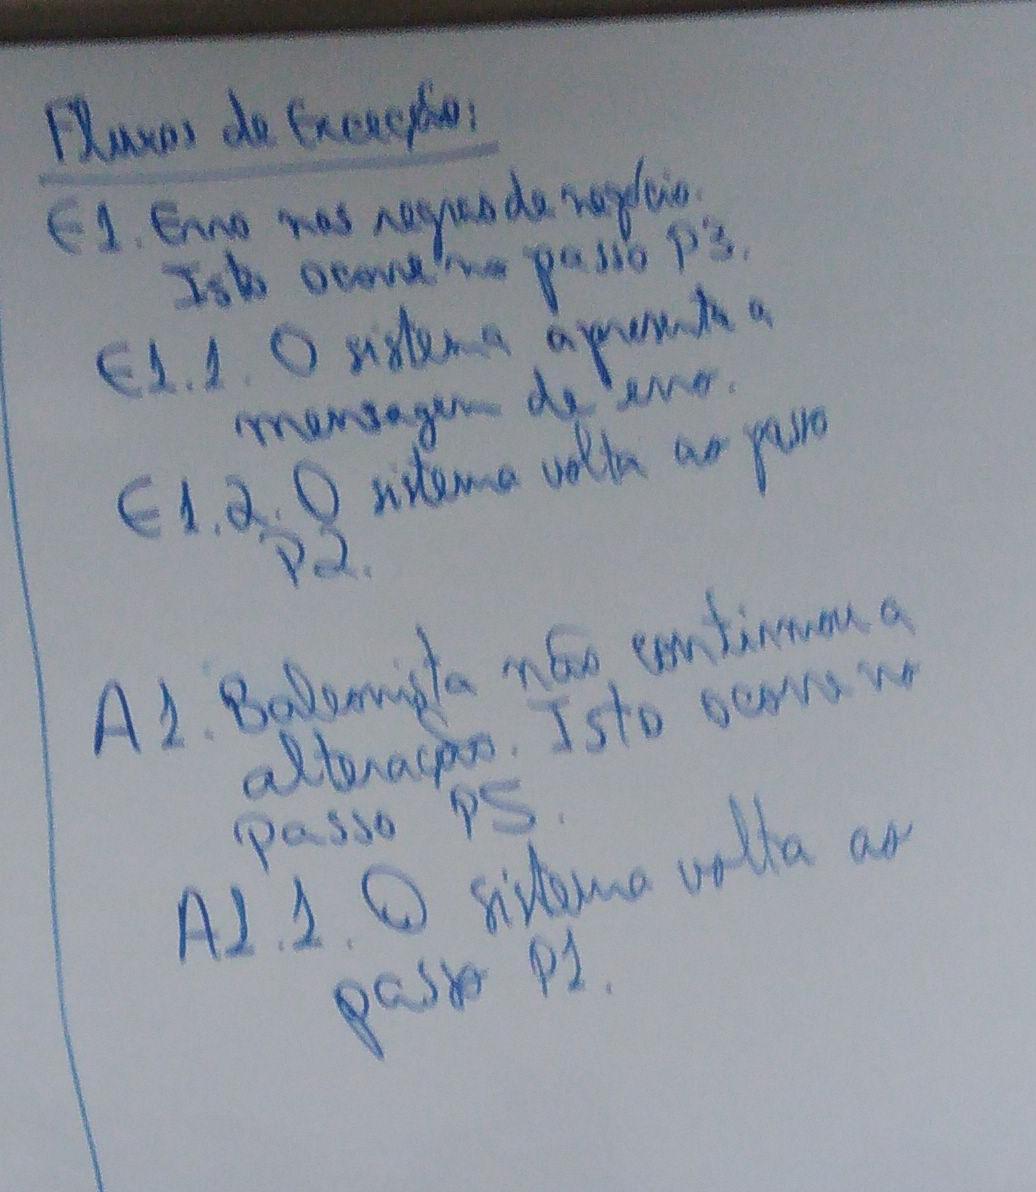 Fluxos de Exceção:
E1. Erro nas regras de negócio.
Isto ocorre no passo P3.
E1.1. O sistema apresenta a
mensagem de erro.
E1.2. O sistema volta ao passo
P2.
A1. não confirmou a
alteração. Isto ocorre no
passo P5.
A1.1. O sistema volta ao
passo P1.